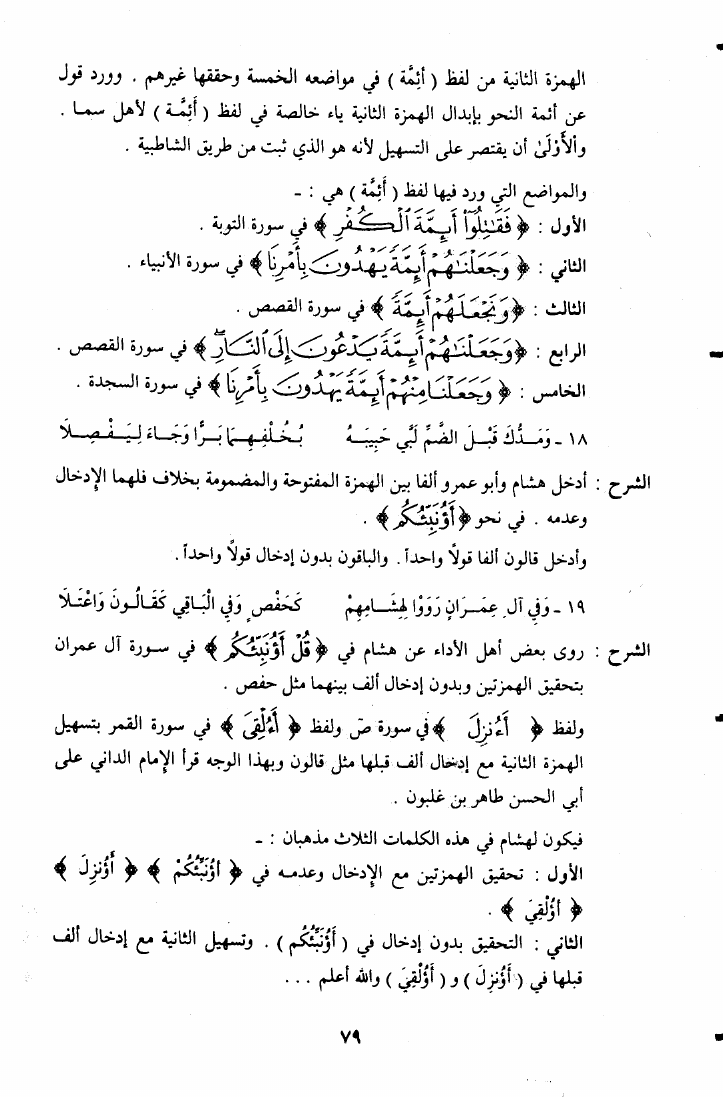 الهمزة الثانية من لفظ ( أئِمَّة ) في مواضعه الخمسة وحققها غيرهم . وورد قول
عن أئمة النحو بإبدال الهمزة الثانية ياء خالصة في لفظ ( أَئِمَّة ) لأهل سما .
والأَوْلَىٰ أن يقتصر على التسهيل لأنه هو الذي ثبت من طريق الشاطبية .
والمواضع التي ورد فيها لفظ ( أَئِمَّة ) هي : ـ
الأول : ﴿ فَقَٰتِلُوٓاْ أَئِمَّةَ ٱلۡكُفۡرِ ﴾ في سورة التوبة .
الثاني : ﴿ وَجَعَلۡنَٰهُمۡ أَئِمَّةٗ يَهۡدُونَ بِأَمۡرِنَا ﴾ في سورة الأنبياء .
الثالث : ﴿ وَنَجۡعَلَهُمۡ أَئِمَّةٗ ﴾ في سورة القصص .
الرابع : ﴿ وَجَعَلۡنَٰهُمۡ أَئِمَّةٗ يَدۡعُونَ إِلَى ٱلنَّارِۖ ﴾ في سورة القصص .
الخامس : ﴿ وَجَعَلۡنَا مِنۡهُمۡ أَئِمَّةٗ يَهۡدُونَ بِأَمۡرِنَا ﴾ في سورة السجدة .
١٨ ـ وَمَدُّكَ قَبْلَ الضَّمِّ لَبَّي حَبِيبَهُ بُخُلْفِهِمَا بَرًّا وَجَاءَ لِيَفْصِلَا
الشرح : أدخل هشام وأبو عمرو ألفا بين الهمزة المفتوحة والمضمومة بخلاف فلهما الإدخال
وعدمه . في نحو ﴿ أَؤُنَبِّئُكُم ﴾ .
وأدخل قالون ألفا قولاً واحداً . والباقون بدون إدخال قولاً واحداً .
١٩ ـ وَفِي آلِ عِمْرَانٍ رَوَوْا لِهِشَامِهِمْ كَحَفْصٍ وَفِي الْبَاقِي كَقَالُونَ وَاعْتَلَا
الشرح : روى بعض أهل الأداء عن هشام في ﴿ قُلۡ أَؤُنَبِّئُكُم ﴾ في سورة آل عمران
بتحقيق الهمزتين وبدون إدخال ألف بينهما مثل حفص .
ولفظ ﴿ أَءُنزِلَ ﴾ في سورة صۤ ولفظ ﴿ أَءُلۡقِيَ ﴾ في سورة القمر بتسهيل
الهمزة الثانية مع إدخال ألف قبلها مثل قالون وبهذا الوجه قرأ الإمام الداني على
أبي الحسن طاهر بن غلبون .
فيكون لهشام في هذه الكلمات الثلاث مذهبان : ـ
الأول : تحقيق الهمزتين مع الإدخال وعدمه في ﴿ أؤُنَبِّئُكُمْ ﴾ ﴿ أَؤُنزِلَ ﴾
﴿ أَؤُلْقِيَ ﴾ .
الثاني : التحقيق بدون إدخال في ( أَؤُنَبِّئُكُم ) . وتسهيل الثانية مع إدخال ألف
قبلها في ( أَؤُنزِلَ ) و ( أَؤُلْقِيَ ) والله أعلم ...
٧٩